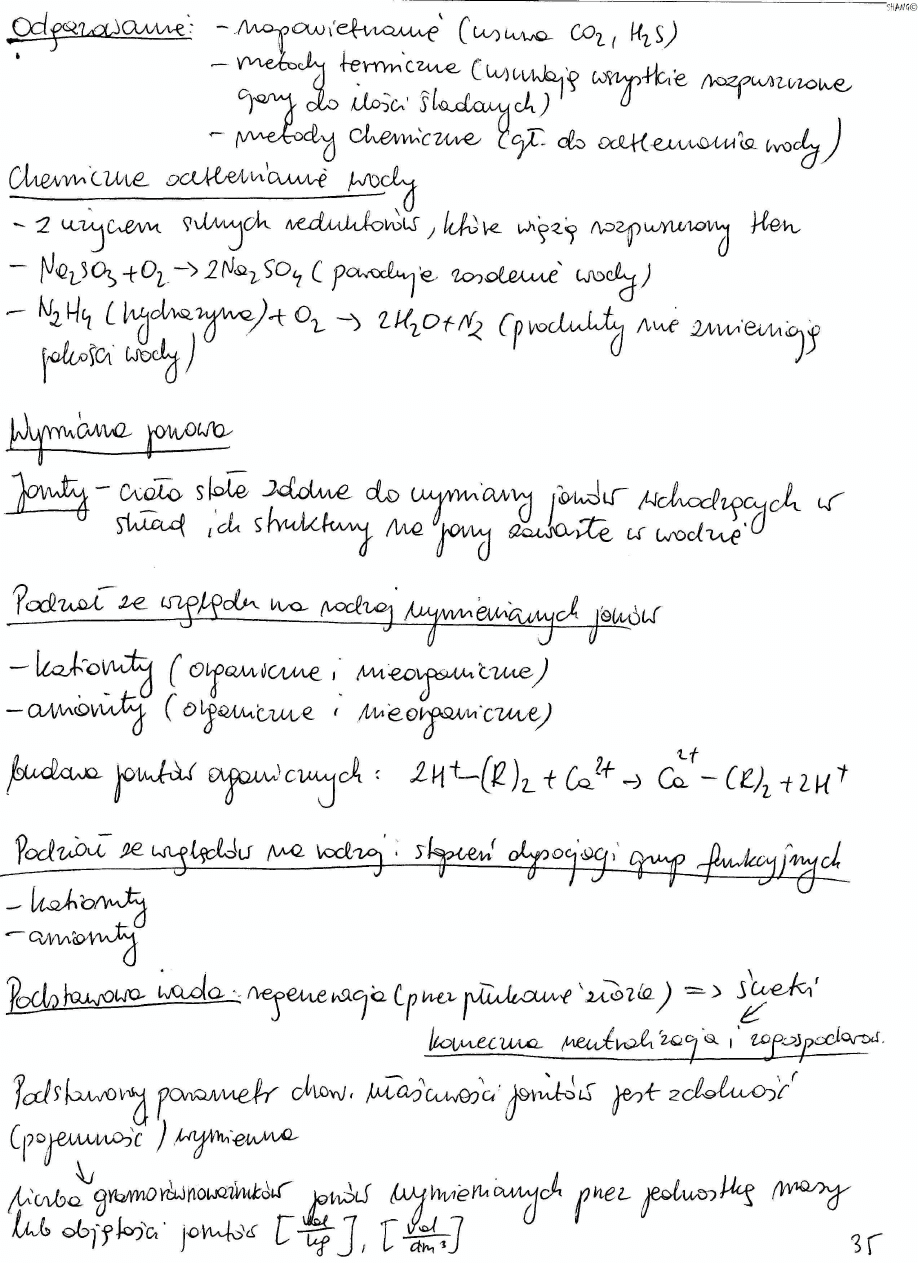 SHANG©
Odgazowanie: - napowietrzanie (usuwa CO2, H2S)
- metody termiczne (usuwają wszystkie rozpuszczone
gazy do ilości śladowych)
- metody chemiczne (gł. do odtleniania wody)
Chemiczne odtlenianie wody
- z użyciem silnych reduktorów, które wiążą rozpuszczony tlen
- Na2SO3 + O2 → 2Na2SO4 (powoduje zasolenie wody)
- N2H4 (hydrazyna) + O2 → 2H2O + N2 (produkty nie zmieniają
jakości wody)
Wymiana jonowa
Jonity - ciała stałe zdolne do wymiany jonów wchodzących w
skład ich struktury na jony zawarte w wodzie
Podział ze względu na rodzaj wymienianych jonów
- kationity (organiczne i nieorganiczne)
- anionity (organiczne i nieorganiczne)
budowa jonitów oganicznych: 2H+-(R)2 + Ca2+ → Ca2+ - (R)2 + 2H+
Podział ze względów na rodzaj i stopień dysocjacji grup funkcyjnych
- kationity
- anionity
Podstawowa wada: regeneracja (przez płukanie złoża) => ścieki
konieczna neutralizacja i zagospodarow.
Podstawowy parametr char. właściwości jonitów jest zdolność
(pojemność) wymienna
liczba gramorównoważników jonów wymienianych przez jednostkę masy
lub objętości jonitów [val/kg], [val/dm3]
35